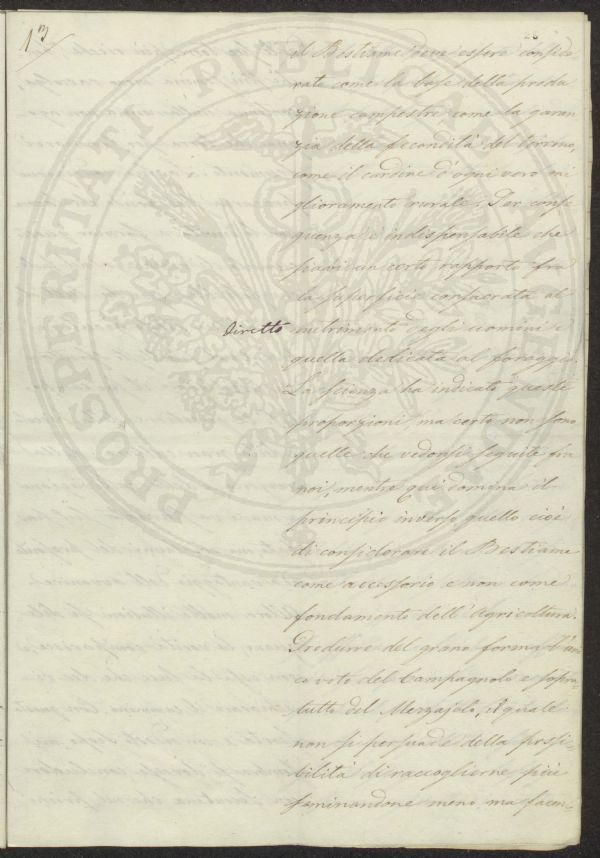 13
il Bestiame deve essere conside-
rato come la base della produ
zione campestre come la garan
zia della fecondità del terreno,
come il cardine d'ogni vero mi
glioramento rurale. Per conse
guenza è indispensabile che
siavi un certo rapporto fra
la superficie consacrata al
diretto nutrimento degli uomini e
quella dedicata al foraggio.
La scienza ha indicato queste
proporzioni, ma certo non sono
quelle che vedonsi seguite fra
noi, mentre qui domina il
principio inverso, quello cioè
di considerare il Bestiame
come accessorio e non come
fondamento dell'Agricoltura.
Produrre del grano forma l'uni
co voto del Campagnolo e sopra
tutto del Mezzajolo, il quale
non si persuade della possi-
bilità di raccoglierne più
seminandone meno, ma facen-
PROSPERITATI PUBLICAE